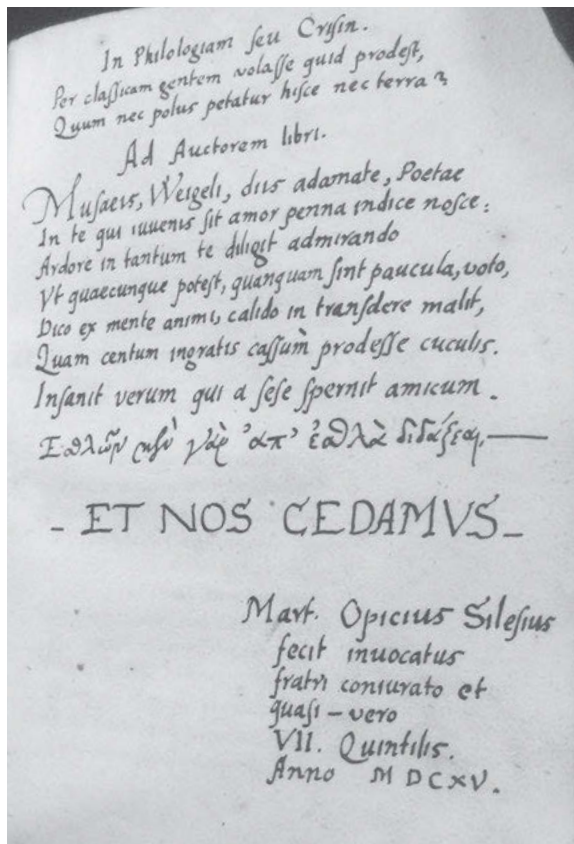 In Philologiam seu Crisin.
Per classicam gentem volasse quid prodest,
Quum nec polus petatur hisce nec terra?
Ad Auctorem libri.
Musaeis, Weigeli, diis adamate, Poetae
In te qui iuuenis sit amor penna indice nosce:
Ardore in tantum te diligit admirando
Vt quaecunque potest, quanquam sint paucula, voto,
Dico ex mente animi, calido in transdere malit,
Quam centum ingratis cassum prodesse cuculis.
Insanit verum qui a sese spernit amicum.
Ἐσθλῶν μὲν γὰρ ἀπ' ἐσθλὰ διδάξεαι.
- ET NOS CEDAMVS -
Mart. Opicius Silesius
fecit inuocatus
fratri coniurato et
quasi - vero
VII. Quintilis.
Anno MDCXV.